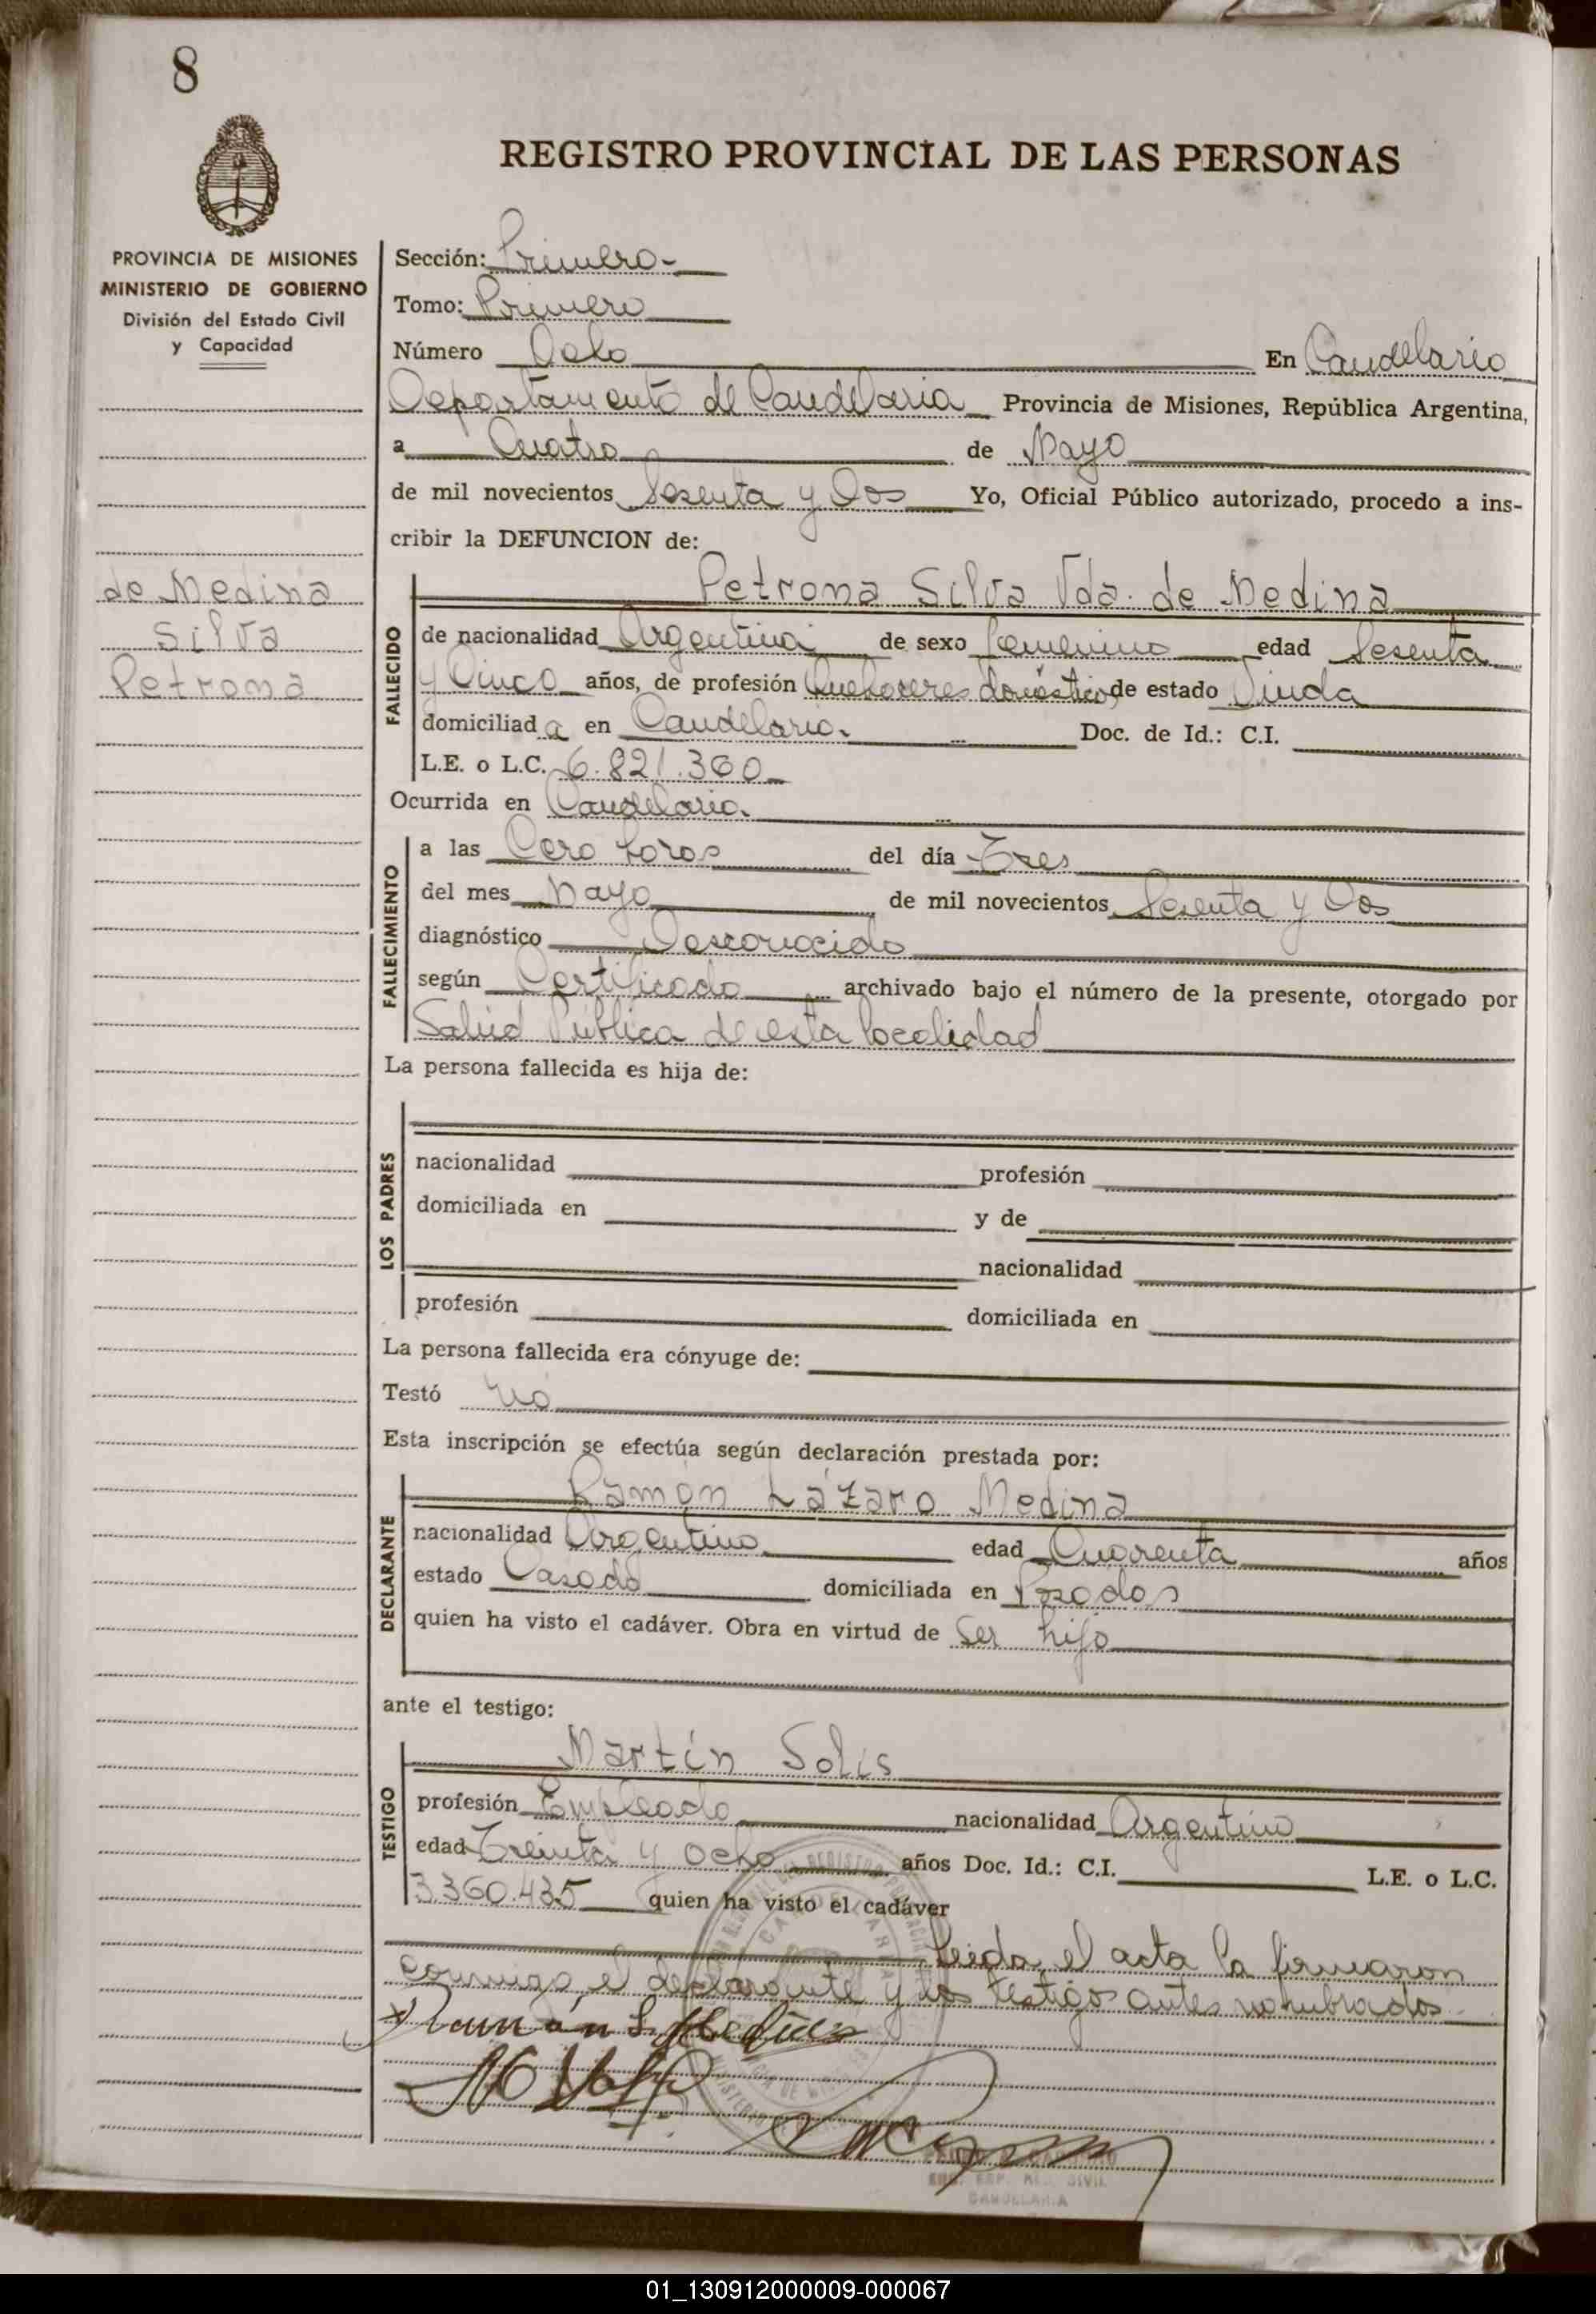 8
REGISTRO PROVINCIAL DE LAS PERSONAS
PROVINCIA DE MISIONES
MINISTERIO DE GOBIERNO
División del Estado Civil
y Capacidad
de Medina
Silva
Petrona
Sección: Primero-
Tomo: Primero
Número Ocho En Candelaria
Departamento de Candelaria Provincia de Misiones, República Argentina,
a Cuatro de Mayo
de mil novecientos Sesenta y Dos Yo, Oficial Público autorizado, procedo a ins-
cribir la DEFUNCION de:
FALLECIDO
Petrona Silva Vda. de Medina
de nacionalidad Argentina de sexo femenino edad Sesenta
y Cinco años, de profesión Quehaceres domésticos de estado Viuda
domiciliada en Candelaria. Doc. de Id.: C.I.
L.E. o L.C. 6.821.360
Ocurrida en Candelaria.
FALLECIMIENTO
a las Cero horas del día Tres
del mes Mayo de mil novecientos Sesenta y Dos
diagnóstico Desconocido
según Certificado archivado bajo el número de la presente, otorgado por
Salud Pública de esta localidad
La persona fallecida es hija de:
LOS PADRES
nacionalidad profesión
domiciliada en y de
nacionalidad
profesión domiciliada en
La persona fallecida era cónyuge de:
Testó no
Esta inscripción se efectúa según declaración prestada por:
DECLARANTE
Ramón Lázaro Medina
nacionalidad Argentino edad Cuarenta años
estado Casado domiciliada en Posadas
quien ha visto el cadáver. Obra en virtud de Ser hijo
ante el testigo:
TESTIGO
Martín Solis
profesión Empleado nacionalidad Argentino
edad Treinta y ocho años Doc. Id.: C.I. L.E. o L.C.
3.360.435 quien ha visto el cadáver
Leida el acta la firmaron
conmigo el declarante y los testigos antes nombrados
Ramón L. Medina
CANDELARIA
01_130912000009-000067